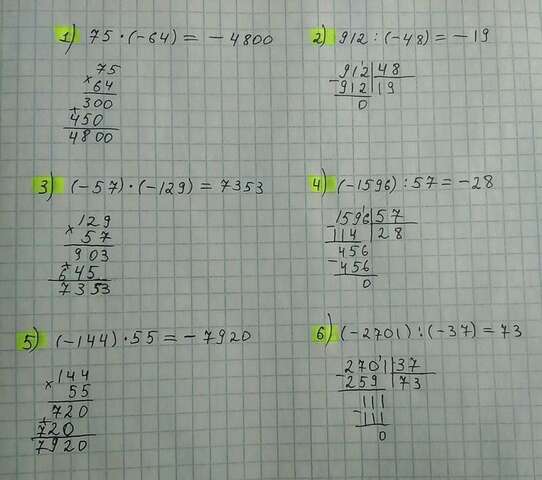 1) 75 · (-64) = - 4800
75
× 64
300
+ 450
4800
2) 912 : (-48) = - 19
912 | 48
- 912 | 19
0
3) (-57) · (-129) = 7353
129
× 57
903
+ 645
7353
4) (-1596) : 57 = - 28
1596 | 57
- 114 | 28
456
- 456
0
5) (-144) · 55 = - 7920
144
× 55
720
+ 720
7920
6) (-2701) : (-37) = 73
2701 | 37
- 259 | 73
111
- 111
0